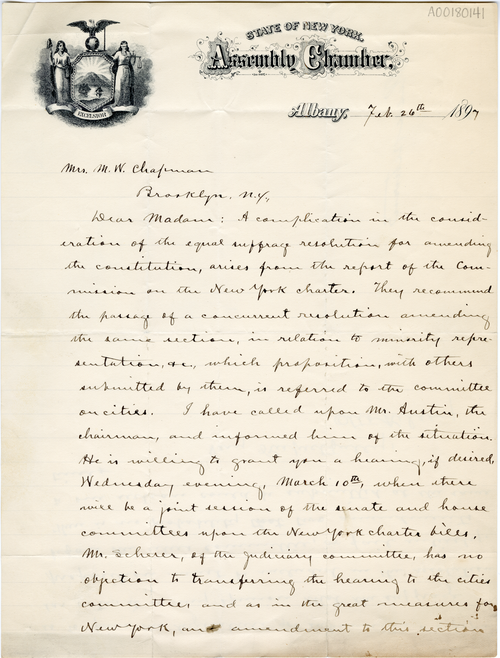 A00180141
STATE OF NEW YORK.
Assembly Chamber,
EXCELSIOR
Albany, Feb. 26th 1897
Mrs. M. W. Chapman
Brooklyn. N.Y.,
Dear Madam: A complication in the consid-
eration of the equal suffrage resolution for amending
the constitution, arises from the report of the Com-
mission on the New York charter. They recommend
the passage of a concurrent resolution amending
the same section, in relation to minority repre-
sentation, &c., which proposition, with others
submitted by them, is referred to the committee
on cities. I have called upon Mr. Austin, the
chairman, and informed him of the situation.
He is willing to grant you a hearing, if desired,
Wednesday evening, March 10th, when there
will be a joint session of the senate and house
committees upon the New York charter bills.
Mr. Scherer, of the Judiciary committee, has no
objection to transferring the hearing to the cities
committee and as in the great measures for
New York, an amendment to this section